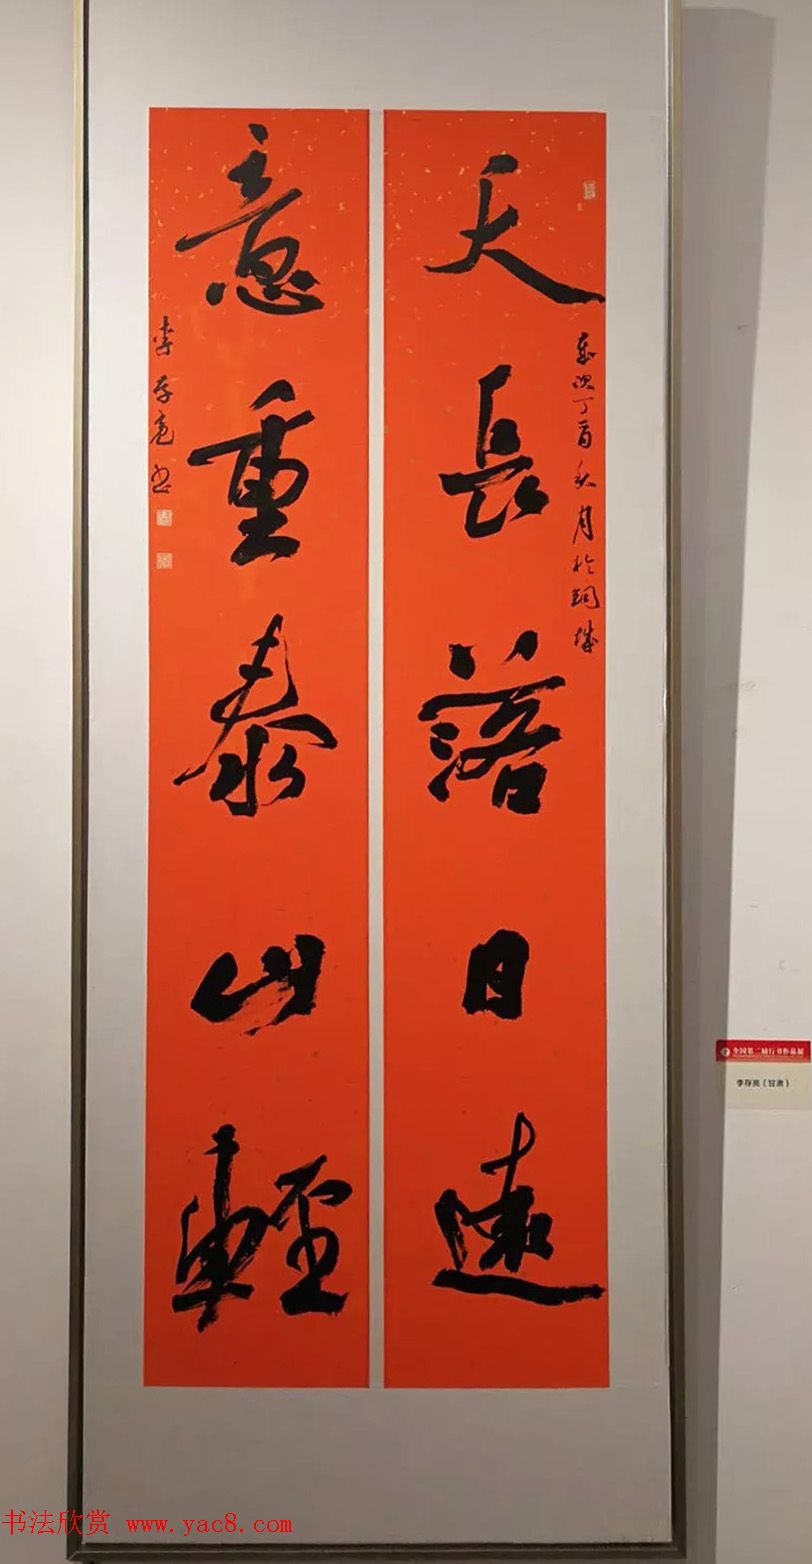 天長落日遠
歲次丁酉秋月於銅城
意重泰山輕
李存亮书
全国第二届行书作品展
李存亮（甘肃）
书法欣赏 www.yac8.com